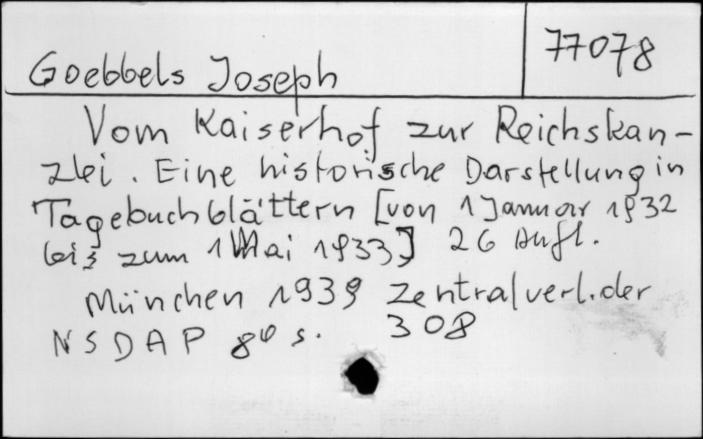 77078
Goebbels Joseph
Vom Kaiserhof zur Reichskan-
zlei. Eine historische Darstellung in
Tagebuchblättern [von 1 Januar 1932
bis zum 1 Mai 1933] 26 Aufl.
München 1939 Zentralverl. der
NSDAP 8º s. 308